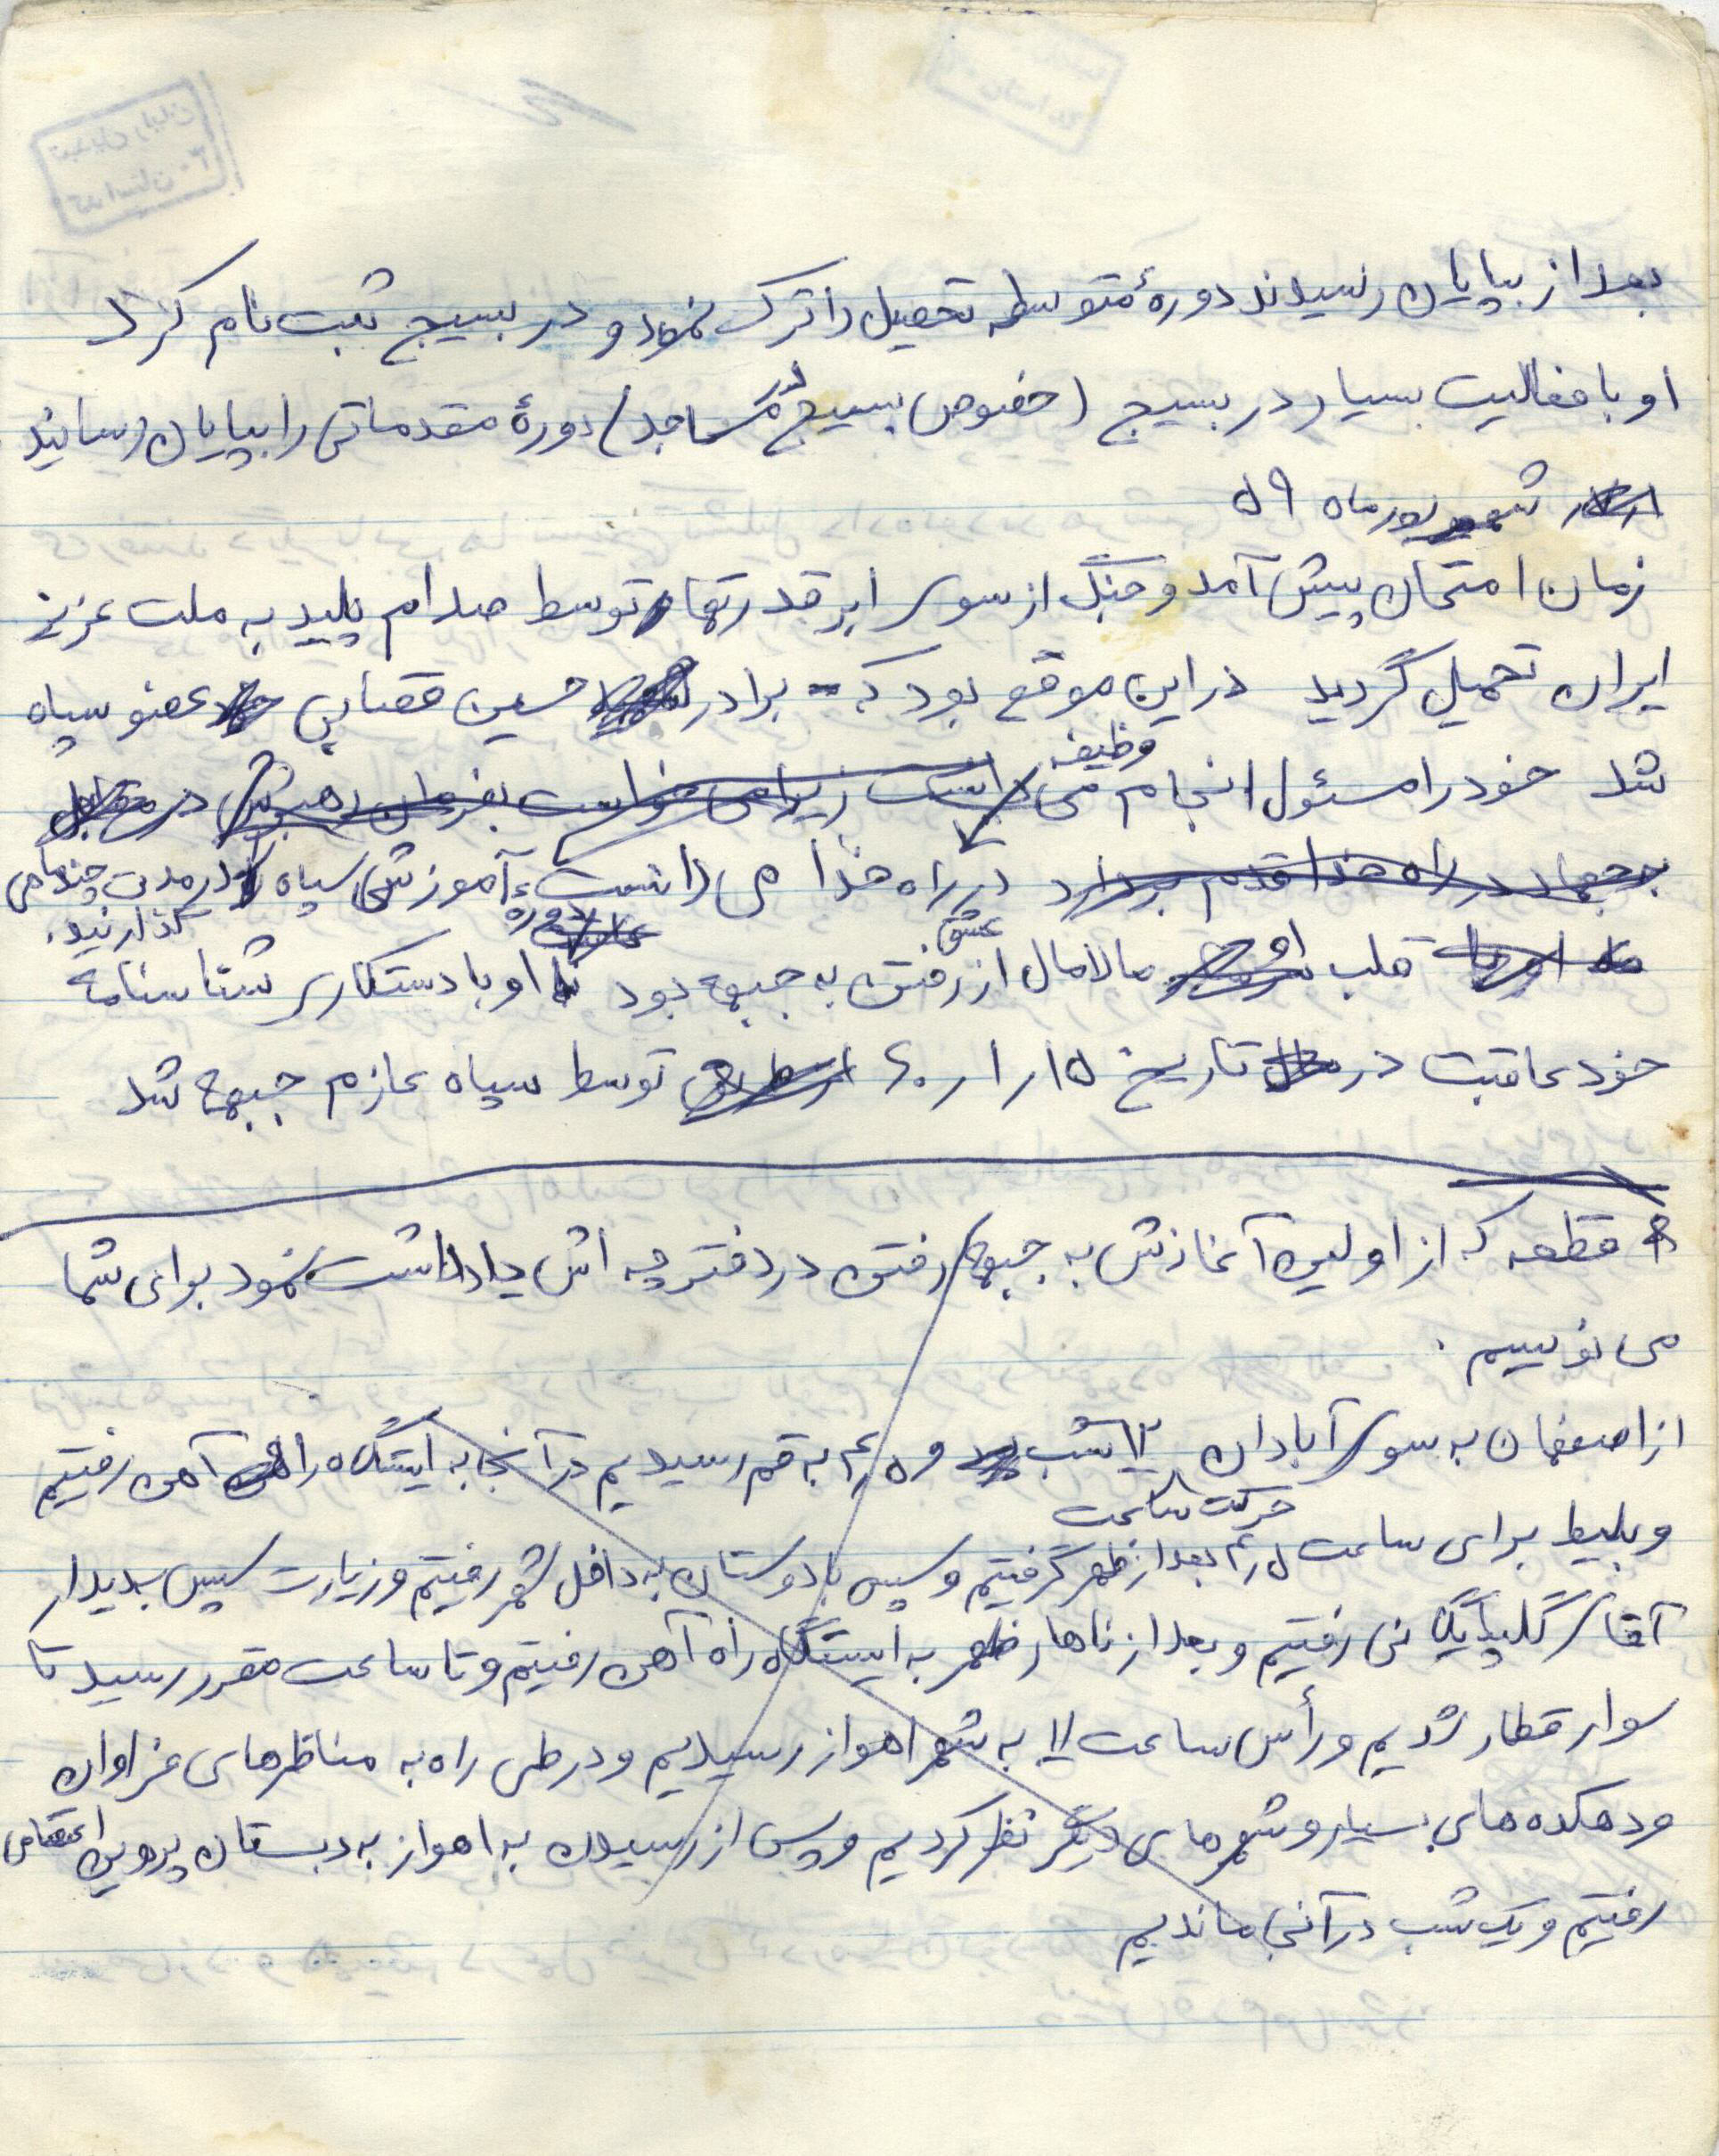 بعد از بپایان رسیدند دورهٔ متوسطه تحصیل را ترک نمود و در بسیج ثبت نام کرد
او با فعالیت بسیار در بسیج (خصوص بسیج در مساجد) دورهٔ مقدماتی را بپایان رسانید
شهریور ماه ۵۹
زمان امتحان پیش آمد و جنگ از سوی ابر قدرتها توسط صدام پلید به ملت عزیز
ایران تحمیل گردید در این موقع بود که برادر حسین قصابی عضو سپاه
شد خود را مسئول انجام وظیفه می دانست زیرا می خواست بفرمان رهبرش در مقابل
به جهاد در راه خدا قدم بردارد در راه خدا می دانست دوره آموزش سپاه را در مدت چند ماهی
گذارنید.
قلب او مالامال از عشق رفتن به جبهه بود او با دستکاری شناسنامه
خود عاقبت در تاریخ ۶۰٫۱٫۱۵ توسط سپاه عازم جبهه شد
قطعه که از اولین آغازش به جبهه رفتن در دفترچه اش یادداشت نمود برای شما
می نویسیم.
از اصفهان به سوی آبادان ۱۲ شب و ۴٫۵ به قم رسیدیم در آنجا به ایستگاه راه آهن رفتیم
حرکت ساعت
و بلیط برای ساعت ۴٫۵ بعد از ظهر گرفتیم و سپس با دوستان به داخل شهر رفتیم و زیارت سپس بدیدار
آقای گلپایگانی رفتیم و بعد از ناهار ظهر به ایستگاه راه آهن رفتیم و تا ساعت مقرر رسید تا
سوار قطار شدیم و رأس ساعت ۱۱ به شهر اهواز رسیدیم و در طی راه به مناظرهای فراوان
و دهکده های بسیار و شهرهای دیگر نظر کردیم و پس از رسیدن به اهواز به دبستان پروین اعتصامی
رفتیم و یک شب در آنجا ماندیم